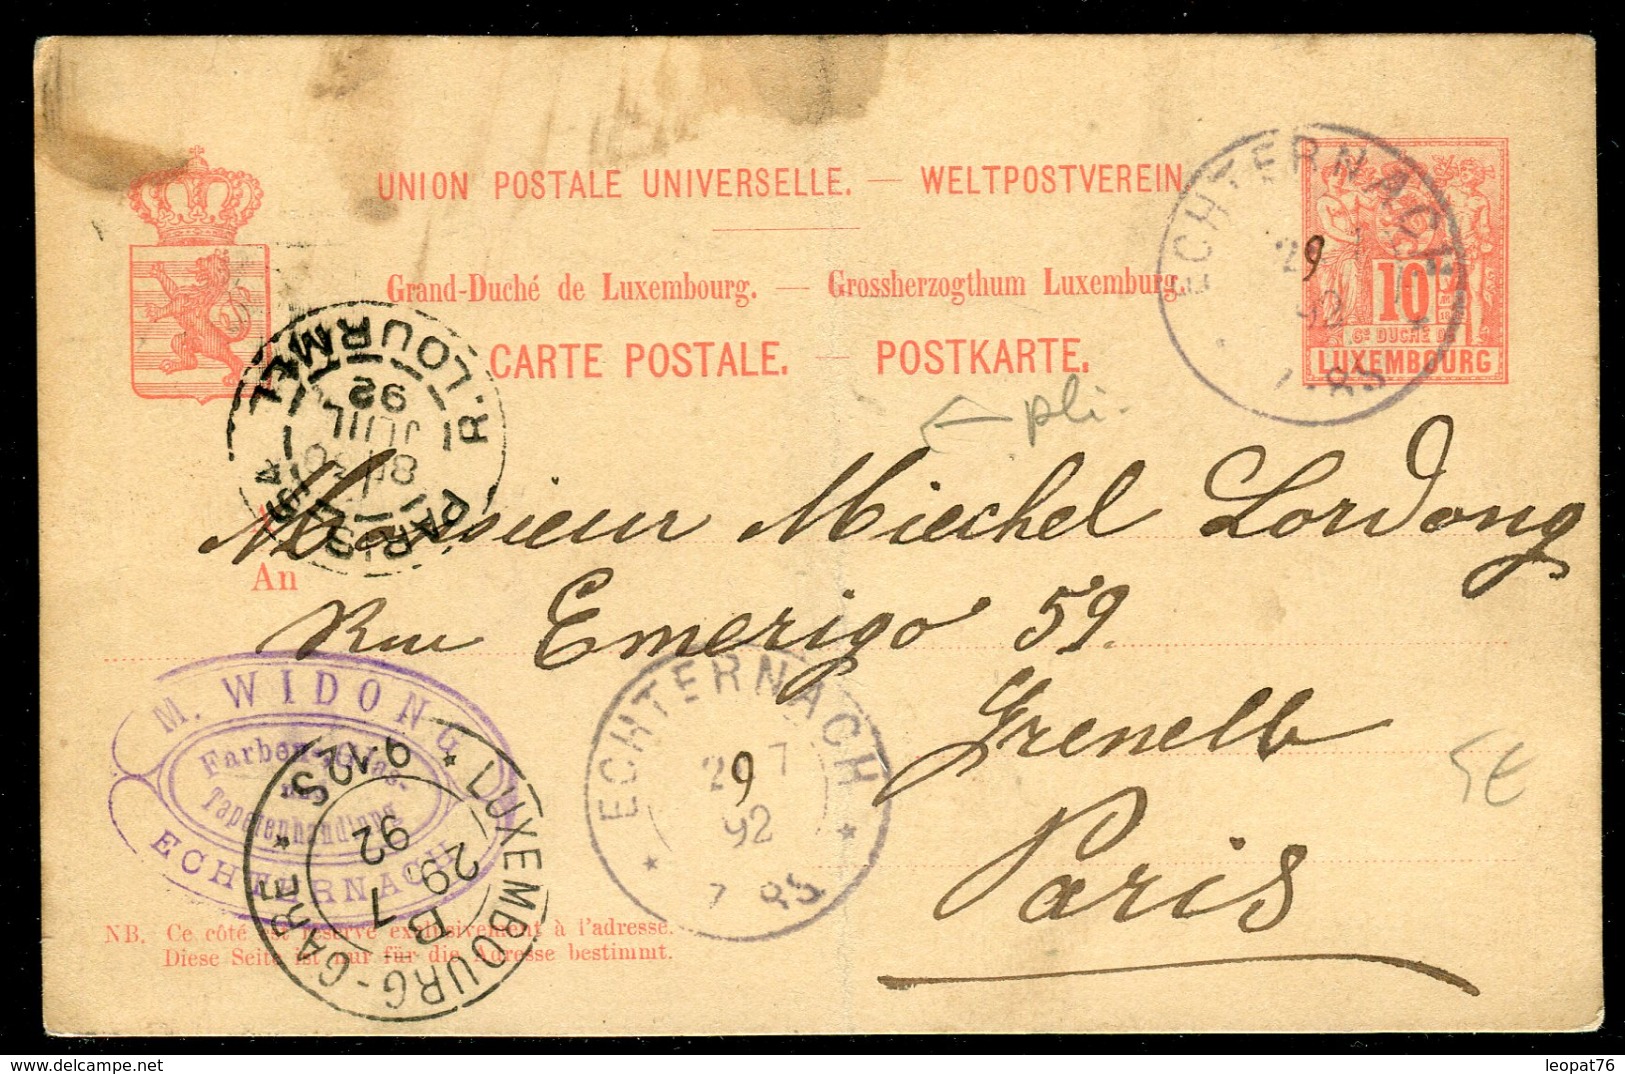 UNION POSTALE UNIVERSELLE. — WELTPOSTVEREIN
Grand-Duché de Luxembourg. — Grossherzogthum Luxemburg.
CARTE POSTALE. — POSTKARTE.
10
Gd DUCHÉ DE
LUXEMBOURG
ECHTERNACH
29
92
7-8S
R. LOURMEL
PARIS
92
JUIL
pli.
Monsieur Miechel Lordong
An
Rue Emerigo 59.
Grenelle
Paris
5€
M. WIDONG
Farben-, Glas-
und
Tapetenhandlung
ECHTERNACH
LUXEMBOURG-GARE
9-10S
29. 7
92
B
ECHTERNACH
29 7
92
7-8S
NB. Ce côté est réservé exclusivement à l'adresse.
Diese Seite ist nur für die Adresse bestimmt.
leopat76